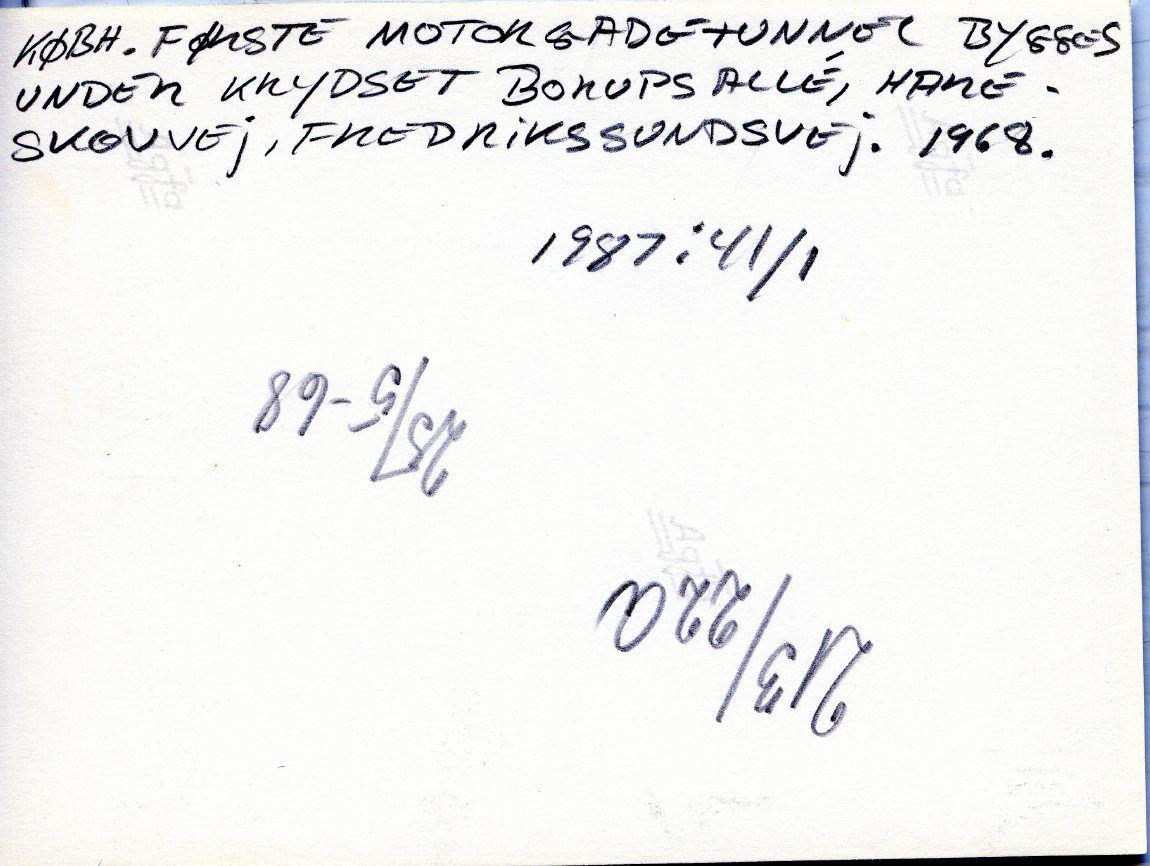 KØBH. FØRSTE MOTORGADETUNNEL BYGGES
UNDER KRYDSET BORUPS ALLÉ, HARE-
SKOVVEJ, FREDRIKSSUNDSVEJ. 1968.
1987:41/1
25/5-68
213/22a